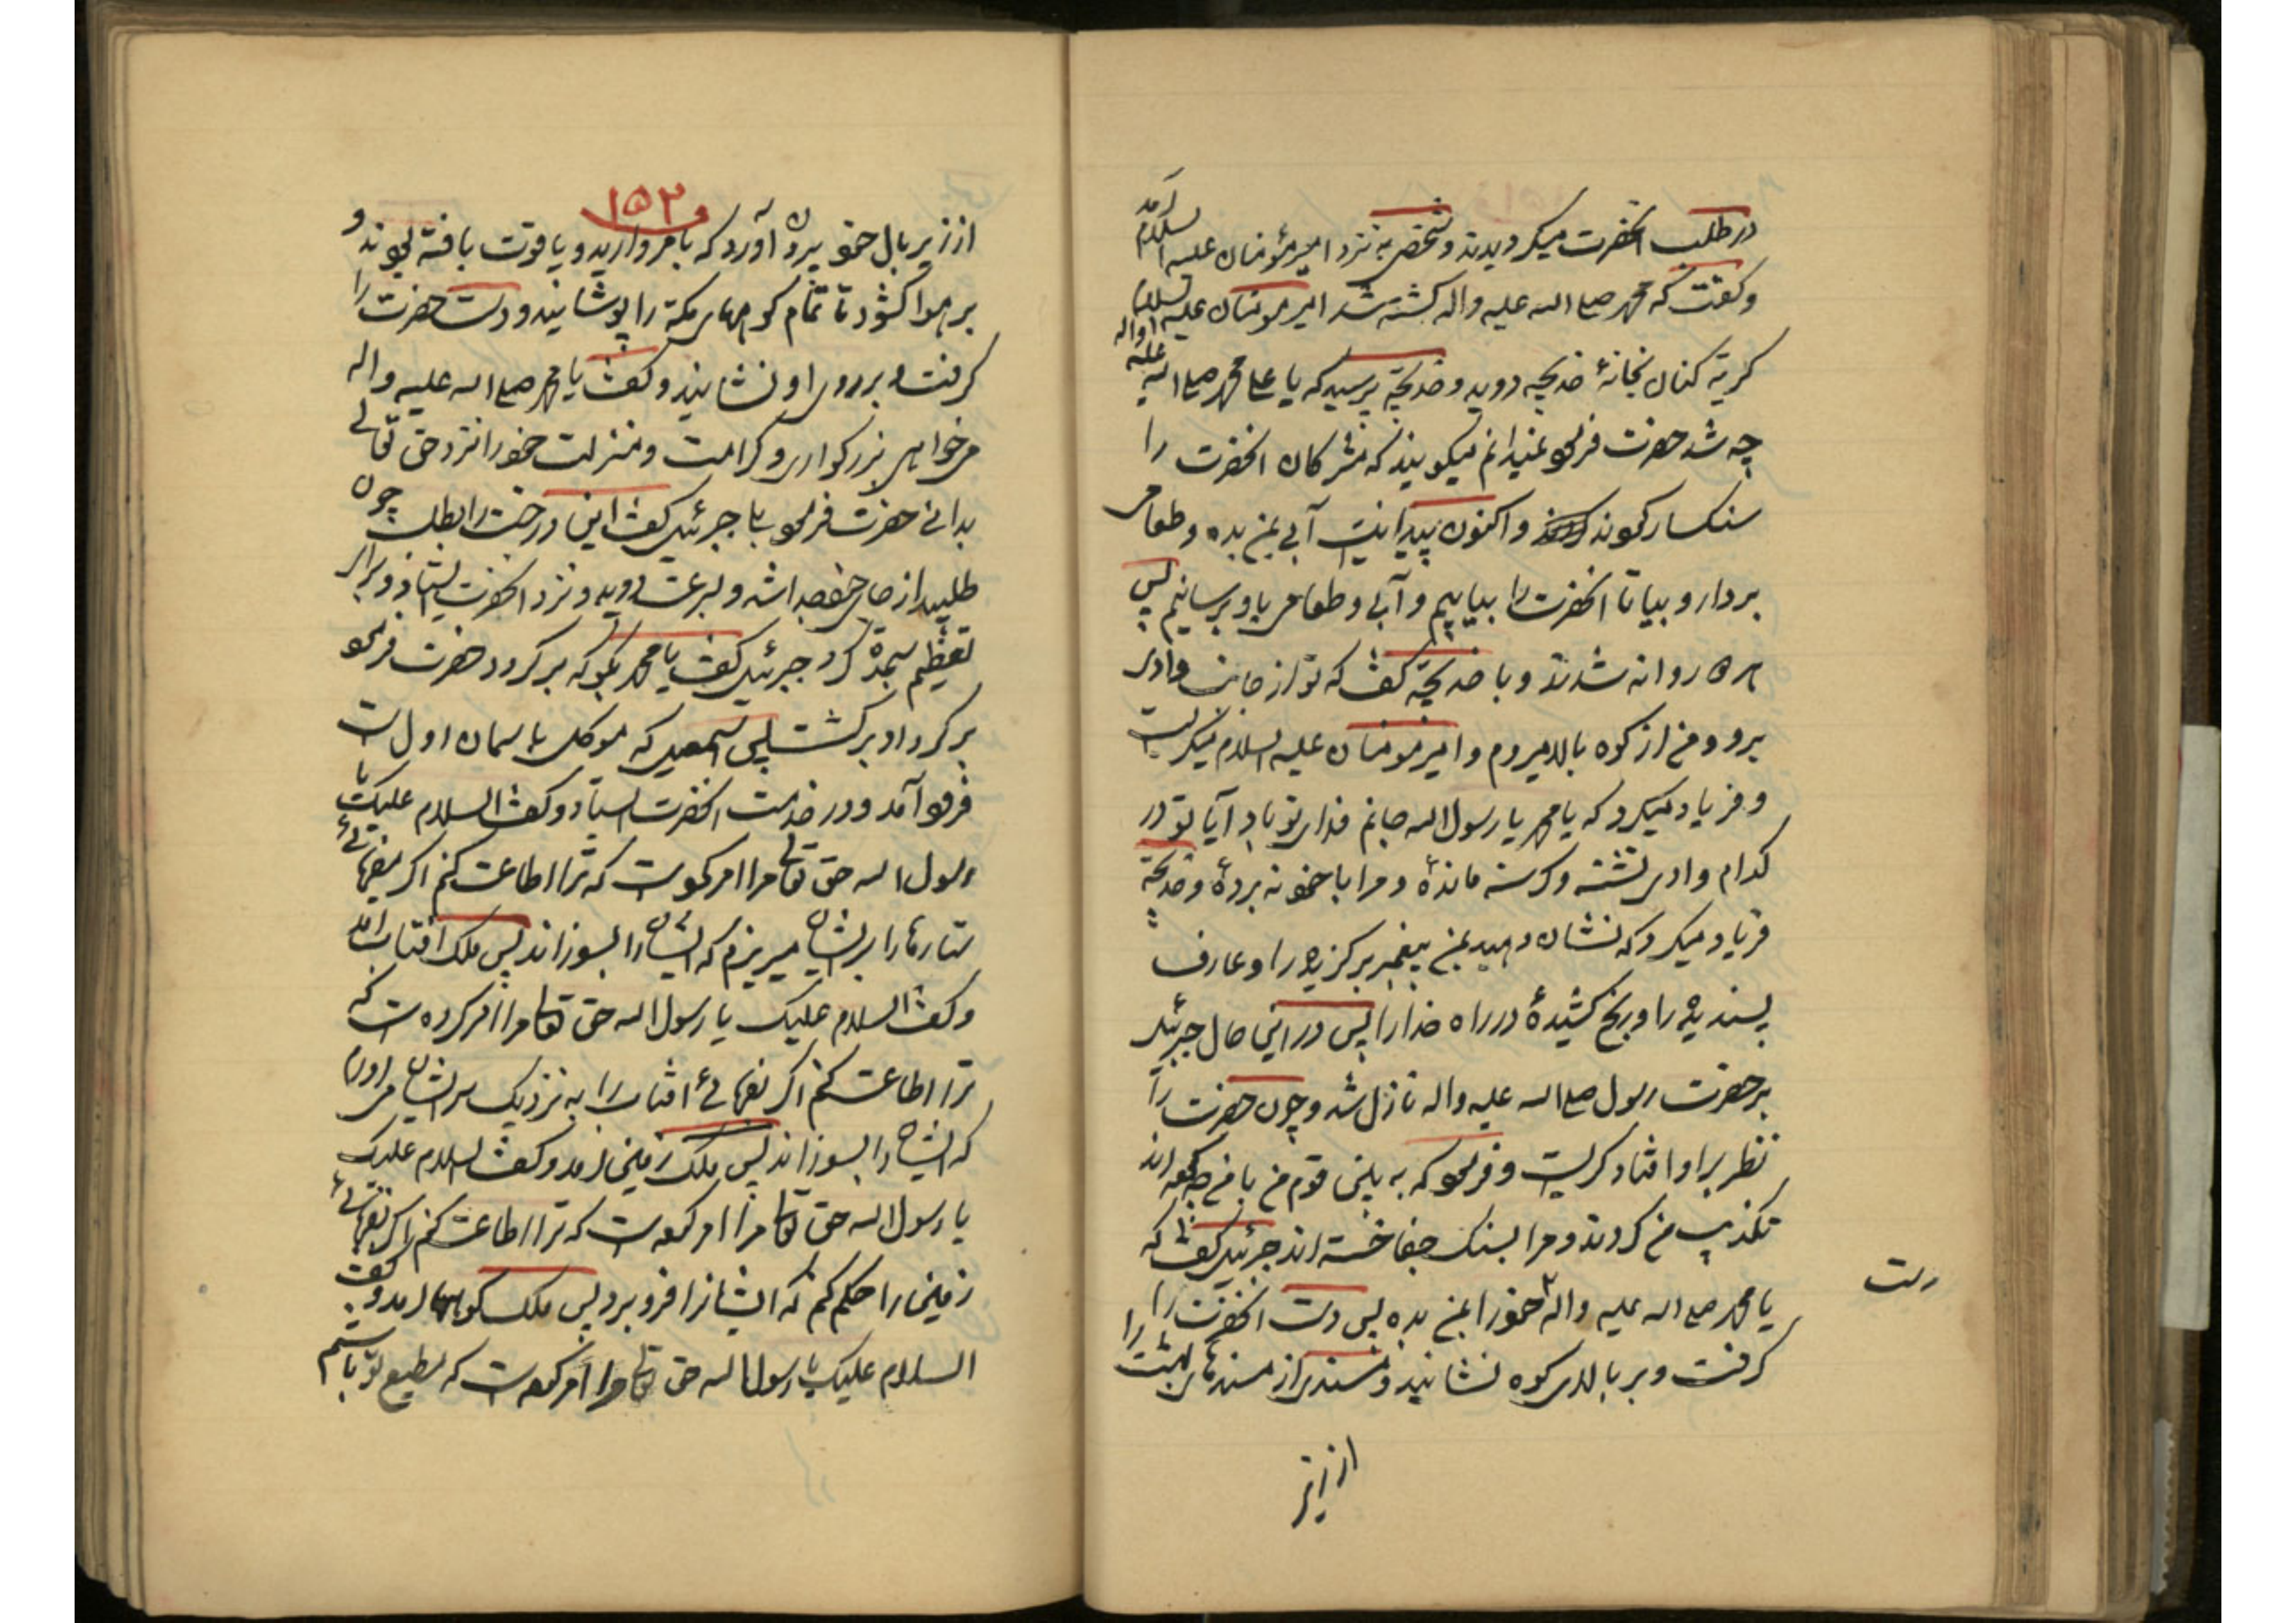 در طلب آنحضرت میکردیدند و شخصی به نزد امیر مؤمنان علیه السلام آمد
و کفت که محمد صلی الله علیه واله کشته شد امیر مومنان علیه السلام
کریه کنان بخانهٔ خدیجه دوید و خدیجه پرسید که یا علی محمد صلی الله علیه واله
چه شد حضرت فرمود نمیدانم میکویند که مشرکان انحضرت را
سنکسار کموند و اکنون پیدا نیست آبی بمن بده و طعامی
بردار و بیا تا انحضرت را بیابیم و آبی و طعامی باو برسانیم پس
براه روانه شدند و با خدیجه کفت که تو از جانب وادی
برو و من از کوه بالا میروم و امیر مومنان علیه السلام میکریست
و فریاد میکرد که یا محمد یا رسول الله جانم فدای تو باد آیا تو در
کدام وادی تشنه و کرسنه ماندهٔ و مرا با خود نه بردهٔ و خدیجه
فریاد میکرد که نشان دهید بمن پیغمبر برکزیده را و عارف
پسندیده را و رنج کشیدهٔ در راه خدا را پس در این حال جبرئیل
بر حضرت رسول صلی الله علیه واله نازل شد و چون حضرت را
نظر براو افتاد کریست و فرمود که به بینی قوم من با من چه کموه اند
تکذیب من کردند و مرا بسنک جفا خسته اند جبرئیل کفت که
یا محمد صلی الله علیه واله خود را بمن بده پس دست انحضرت را
دست
کرفت و بر بالای کوه نشانید و مسندی از مسندهای بهشت را
از زیر
۱۵۲
از زیر بال خود بیرون آورد که با مروارید و یاقوت بافته بودند و
بر هوا کشود تا تمام کوههای مکه را پوشانید و دست حضرت را
کرفت و بر روی او نشانید و کفت یا محمد صلی الله علیه واله
میخواهی بزرکواری و کرامت و منزلت خود را نزد حق تعالی
بدانی حضرت فرمود بلی جبرئیل کفت این درخت را بطلب چون
طلبید از جای خود جدا شد و بسرعت دوید و نزد انحضرت ایستاد و برای
تعظیم سجده کرد جبرئیل کفت یا محمد بکو که بر کردد حضرت فرمود
بر کرد او بر کشت پس اسمعیل که موکل باسمان اول است
فرود آمد و در خدمت انحضرت ایستاد و کفت السلام علیک یا
رسول الله حق تعالی مرا امر کموست که ترا اطاعت کنم اکر بفرمائی
ستارها را بر ایشان میریزم که ایشان را بسوزاند پس ملک افتاب آمد
و کفت السلام علیک یا رسول الله حق تعالی مرا امر کرده است که
ترا اطاعت کنم اکر بفرمائی افتاب را به نزدیک سر ایشان می اورم
که ایشان را بسوزاند پس ملک زمین آمد و کفت السلام علیک
یا رسول الله حق تعالی مرا امر کموه است که ترا اطاعت کنم اکر بفرمائی
زمین را حکم کنم که ایشانرا فرو برد پس ملک کوهها آمد و کفت
السلام علیک یا رسول الله حق تعالی مرا امر کموه است که مطیع تو باشم